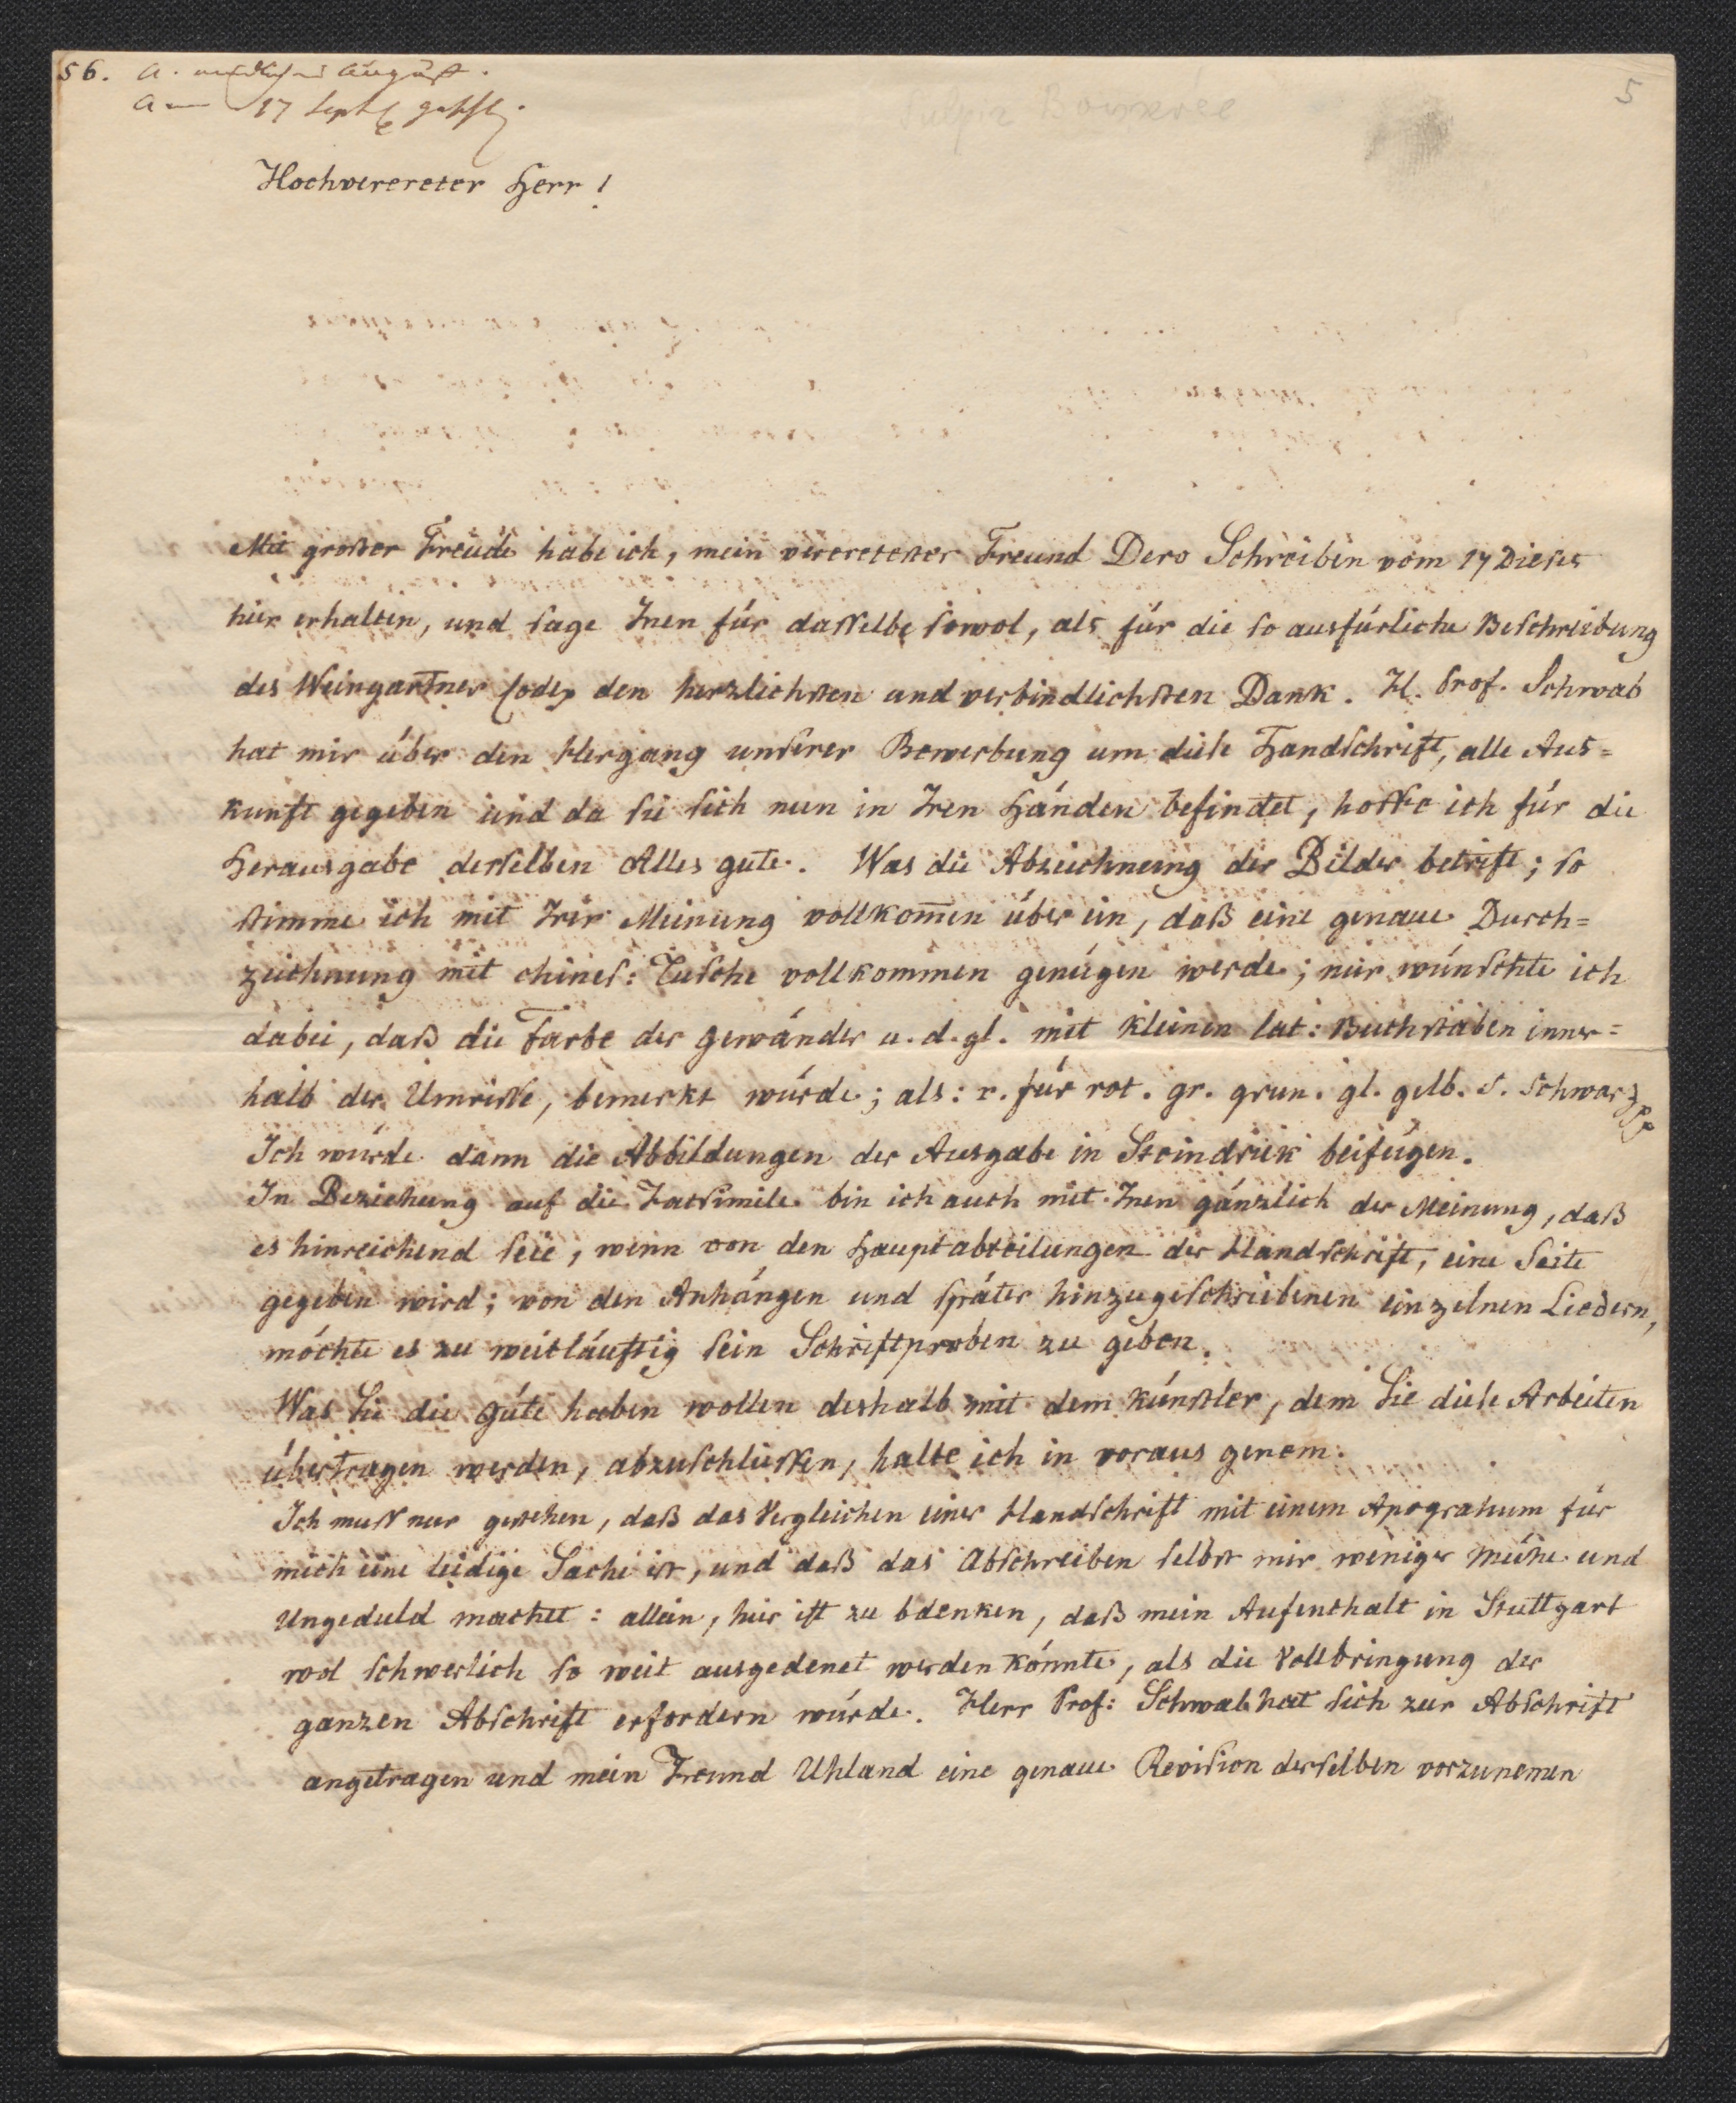 56. a. mündlich im August.
am 17 Sept
Sulpiz Boisserée
5
Hochvererеter Herr!
Mit großer Freude habe ich, mein vereretester Freund Dero Schreiben vom 17 Dieses
hier erhalten, und sage Inen für dasselbe sowol, als für die so ausfürliche Beschreibung
des Weingartner Codex den herzlichsten und verbindlichsten Dank. H. Prof. Schwab
hat mir über den Hergang unserer Bewerbung um diese Handschrift, alle Aus=
kunft gegeben und da sie sich nun in Iren Händen befindet, hoffe ich für die
Herausgabe derselben Alles gute. Was die Abzeichnung der Bilder betrift; so
stimme ich mit Irer Meinung vollkom̅en über ein, daß eine genaue Durch=
zeichnung mit chines: Tusche vollkommen genügen werde; nur wünschte ich
dabei, daß die Farbe der Gewänder u. d. gl. mit kleinen lat: Buchstaben inner=
halb der Umrisse, bemerkt würde; als: r. für rot. gr. grun. gl. gelb. s. schwarz
Ich würde dann die Abbildungen der Ausgabe in Steindruk beifügen.
In Beziehung auf die Facsimile bin ich auch mit Inen gänzlich der Meinung, daß
es hinreichend seie, wenn von den Hauptabteilungen der Handschrift, eine Seite
gegeben wird; von den Anhängen und später hinzugeschriebenen einzelnen Liedern,
möchte es zu weitläuftig sein Schriftproben zu geben.
Was Sie die Güte haben wollen deshalb mit dem Künstler, dem Sie diese Arbeiten
übertragen werden, abzuschliessen, halte ich in voraus genem.
Ich muss nur gestehen, daß das Vergleichen einer Handschrift mit einem Apograhum für
mich eine leidige Sache ist, und daß das Abschreiben selbst mir weniger Mühe und
Ungeduld machet: allein, hier ist zu bdenken, daß mein Aufenthalt in Stuttgart
wol schwerlich so weit ausgedenet werden könnte, als die Vollbringung der
ganzen Abschrift erfordern würde. Herr Prof: Schwab hat sich zur Abschrift
angetragen und mein Freund Uhland eine genaue Revision derselben vorzunemen